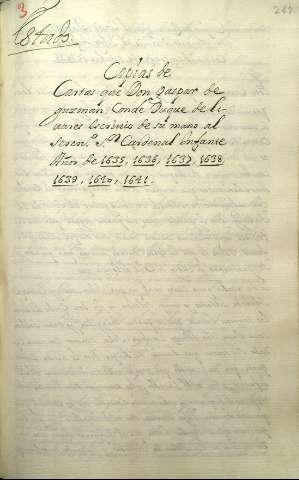 3
Estado
Copias de
Cartas que Don Gaspar de
guzman, Conde Duque de li-
uares escriuio de su mano al
Seren.º S.or Cardenal Infante
Años de 1635, 1636, 1637, 1638
1639, 1640, 1641.